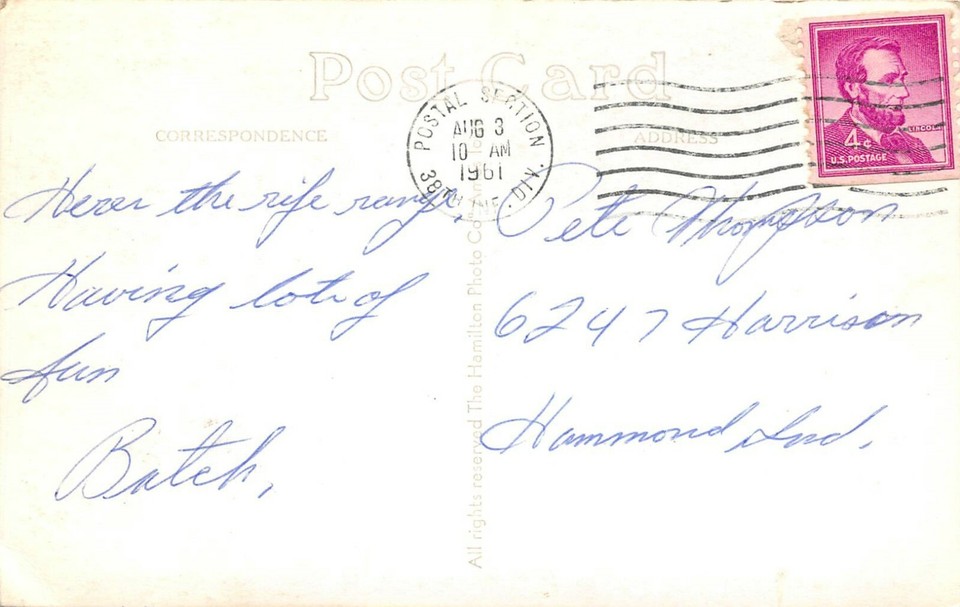 Post Card
CORRESPONDENCE
ADDRESS
POSTAL SECTION
AUG 3
10 AM
1961
38TH DIV.
LINCOLN
4¢
U.S. POSTAGE
the rife range,
Having lots of
fun
Butch,
Pete Thompson
6247 Harrison
Hammond Ind.
All rights reserved The Hamilton Photo Company